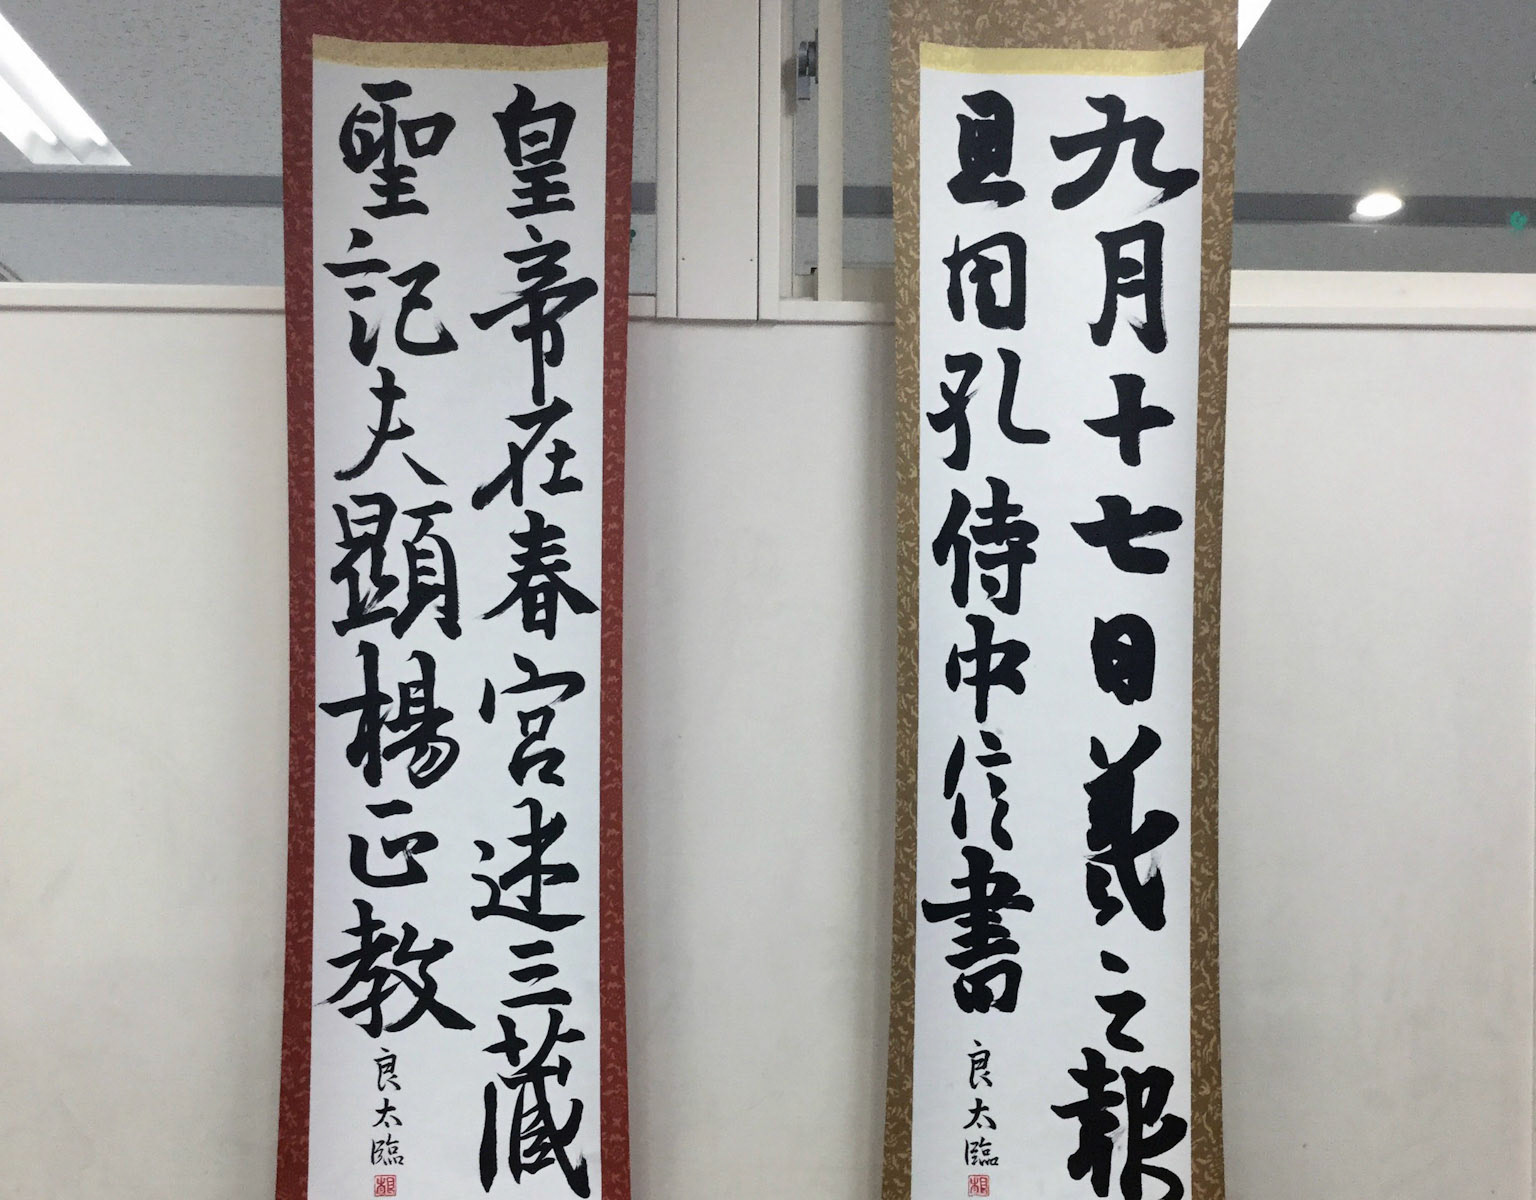 九月十七日羲之報
且因孔侍中信書
良太臨
皇帝在春宮述三藏
聖記夫顯楊正教
良太臨